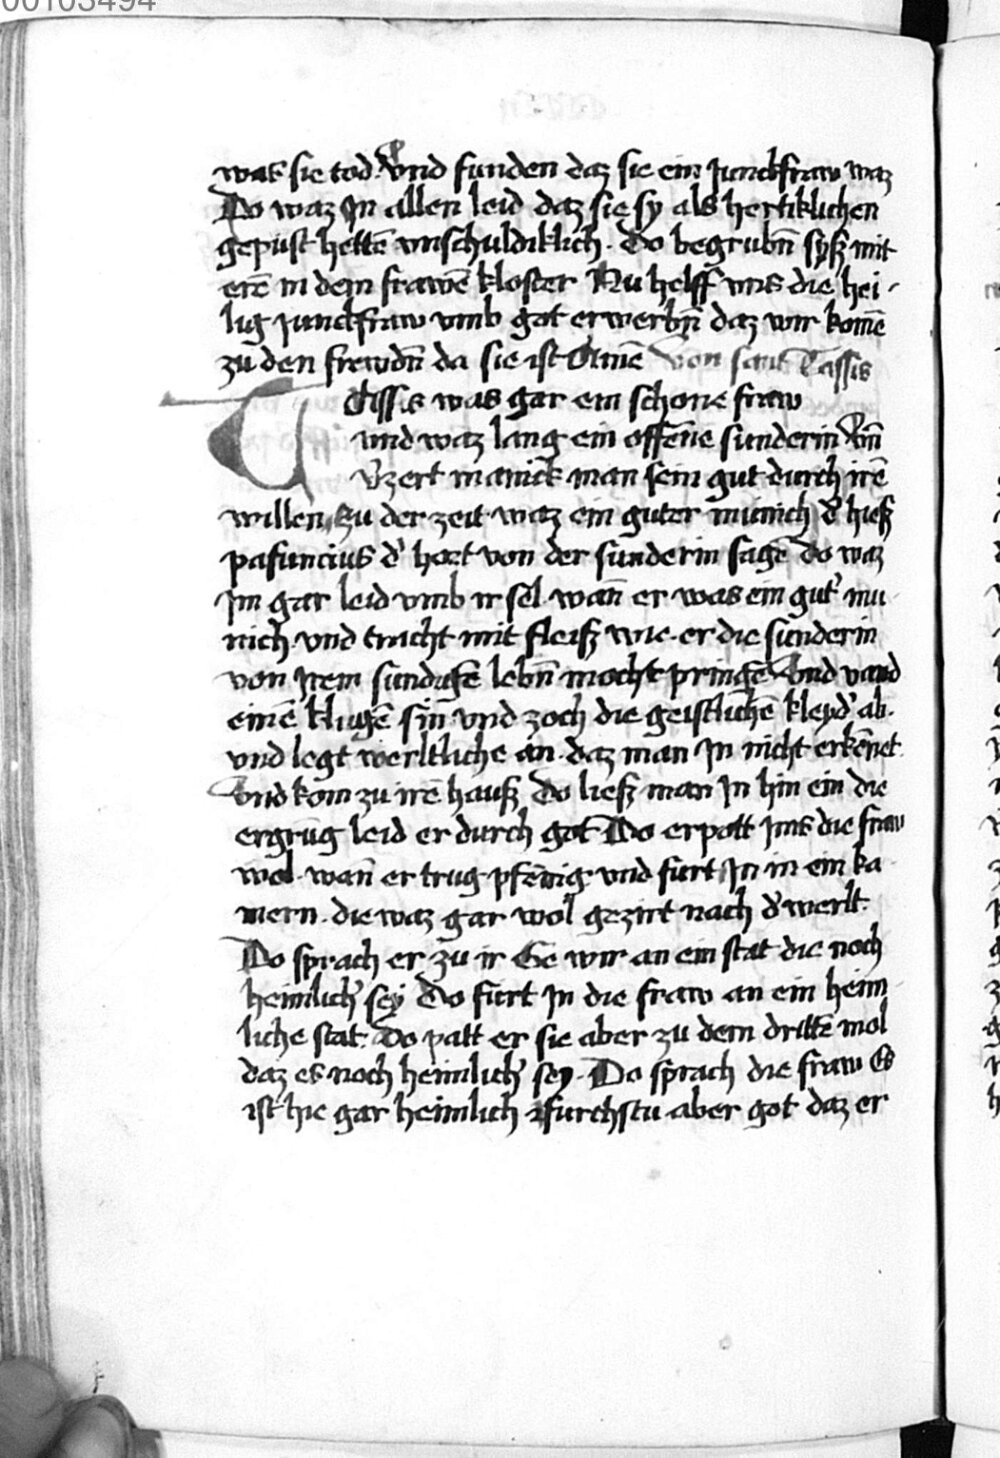 00103494
was sie tod. Vnd funden daz sie ein junckfraw waz
Do waz Jn allen leid daz sie sy als hertiklichen
gepüst hettē vnschuldiklich. Do begrubn̄ syß mit
erē in dem frawē kloster Nu helff vns die hei-
lig junckfraw vmb got erwerbn̄ daz wir komē
zu den frewdn̄ da sie ist Amē Von sant Tassis
Tissis was gar ein schone fraw
vnd waz lang ein offene sunderin Vn̄
Vzert manick man sein gut durch irē
willen, Zu der zeit waz ein guter munich d' hieß
pafuncius d' hort von der sunderin sagē do waz
Jm gar leid vmb ir sel. wan̄ er was ein gut' mu-
nich. vnd tracht mit fleisz wie er die sunderin
von Jrem sundigē lebn̄ mocht pringē Vnd vand
einē klugē sin̄ vnd zoch die geistlichē kleyd' ab.
vnd legt werltliche an. daz man Jn nicht erkēnet.
Vnd kom zu irē hauß Do ließ man Jn hin ein die
ergrūg leid er durch got Do erpott jms die fraw
wol. wan̄ er trug pfēnig vnd furt Jn in ein ka-
mern. die waz gar wol gezirt nach d' werlt.
Do sprach er zu ir Ge wir an ein stat die noch
heimlich' sey Do furt Jn die fraw an ein heim-
liche stat. Do patt er sie aber zu dem drittē mol
daz es noch heimlich' sey. Do sprach die fraw Es
ist hie gar heimlich furchstu aber got daz er